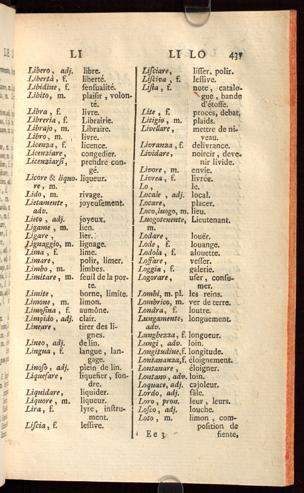 LI
LI LO 437
Libero, adj. libre.
Libertà, f. liberté.
Libidine, f. sensualité.
Libito, m. plaisir, volon-
té.
Libra, f. livre.
Libreria, f. Librairie.
Librajo, m. Libraire.
Libro, m. livre.
Licenza, f. licence.
Licenziare, congedier.
Licenziarsi, prendre con-
gé.
Licore & liquo- liqueur.
re, m.
Lido, m. rivage.
Lietamente, joyeusement.
adv.
Lieto, adj. joyeux.
Ligame, m. lien.
Ligare, lier.
Lignaggio, m. lignage.
Lima, f. lime.
Limare, polir, limer.
Limbo, m. limbes.
Limitare, m. seuil de la por-
te.
Limite, borne, limite.
Limone, m. limon.
Limosina, f. aumône.
Limpido, adj. clair.
Lineare, tirer des li-
gnes.
Lineo, adj. de lin.
Lingua, f. langue, lan-
gage.
Limoso, adj. plein de lin.
Liquefare, liquefier, fon-
dre.
Liquidare, liquider.
Liquore, m. liqueur.
Lira, f. lyre, instru-
ment.
Liscia, f. lessive.
Lisciare, lisser, polir.
Lisciva, f. lessive.
Lista, f. note, catalo-
gue, bande
d'étoffe.
Lite, f. procès, debat,
Litigio, m. plaids.
Livellare, mettre de ni-
veau.
Livranza, f. delivrance.
Lividare, noircir, deve-
nir livide.
Livore, m. envie.
Livrea, f. livrée.
Lo, le.
Locale, adj. local.
Locare, placer.
Loco, luogo, m. lieu.
Luogotenente, Lieutenant.
m.
Lodare, louër.
Lode, f. louange.
Lodola, f. alouette.
Loffiare, vesser.
Loggia, f. galerie.
Logorare, user, consu-
mer.
Lombi, m. pl. les reins.
Lombrico, m. ver de terre.
Londra, f. Loutre.
Lungamente, longuement.
adv.
Lunghezza, f. longueur.
Lungi, adv. loin.
Longitudine, f. longitude.
Lontananza, f. éloignement.
Lontanare, éloigner.
Lontano, adv. loin.
Loquace, adj. cajoleur.
Lordo, adj. sâle.
Loro, pron. leur, leurs.
Losco, adj. louche.
Loto, m. limon, com-
position de
Ee 3 fiente,